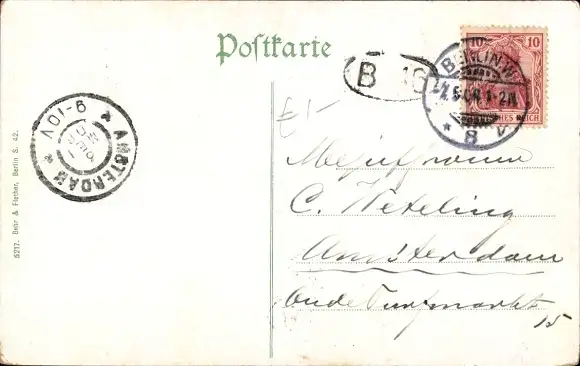 Postkarte
10
DEUTSCHES REICH
BERLIN.W.
8
B 16
AMSTERDAM
9-10V
£1-
Mejuffrouw
C. Weteling
Amsterdam
Oude Turfmarkt
15
5217. Behr & Flether, Berlin S. 42.